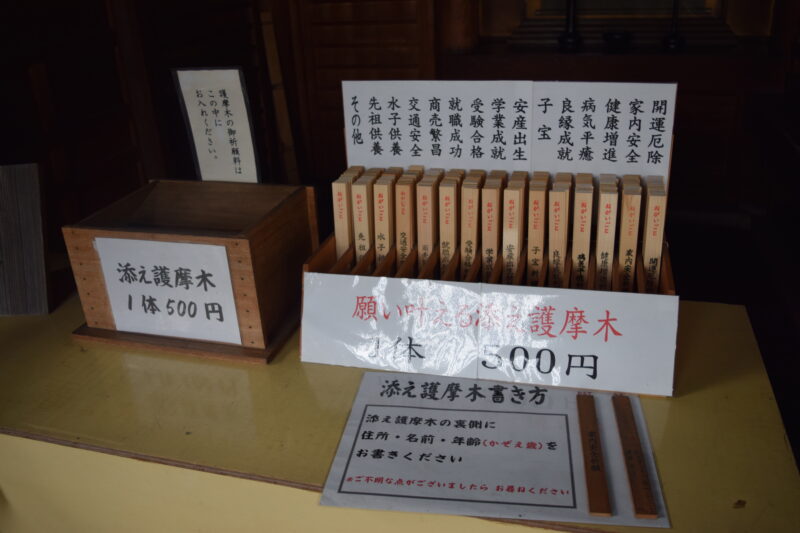 護摩木の御祈願料は
この中に
お入れください。
添え護摩木
1体500円
開運厄除
家内安全
健康増進
病気平癒
良縁成就
子宝
安産出生
学業成就
受験合格
就職成功
商売繁昌
交通安全
水子供養
先祖供養
その他
願い叶える添え護摩木
1体 500円
添え護摩木書き方
添え護摩木の裏側に
住所・名前・年齢(かぞえ歳)を
お書きください
※ご不明な点がございましたら お尋ねください